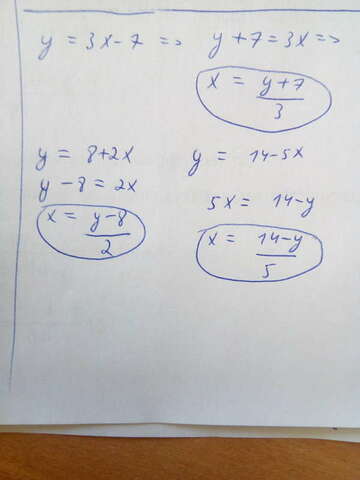 y = 3x-7 => y+7=3x=>
x = y+7/3
y = 8+2x
y-8=2x
x = y-8/2
y = 14-5x
5x= 14-y
x = 14-y/5